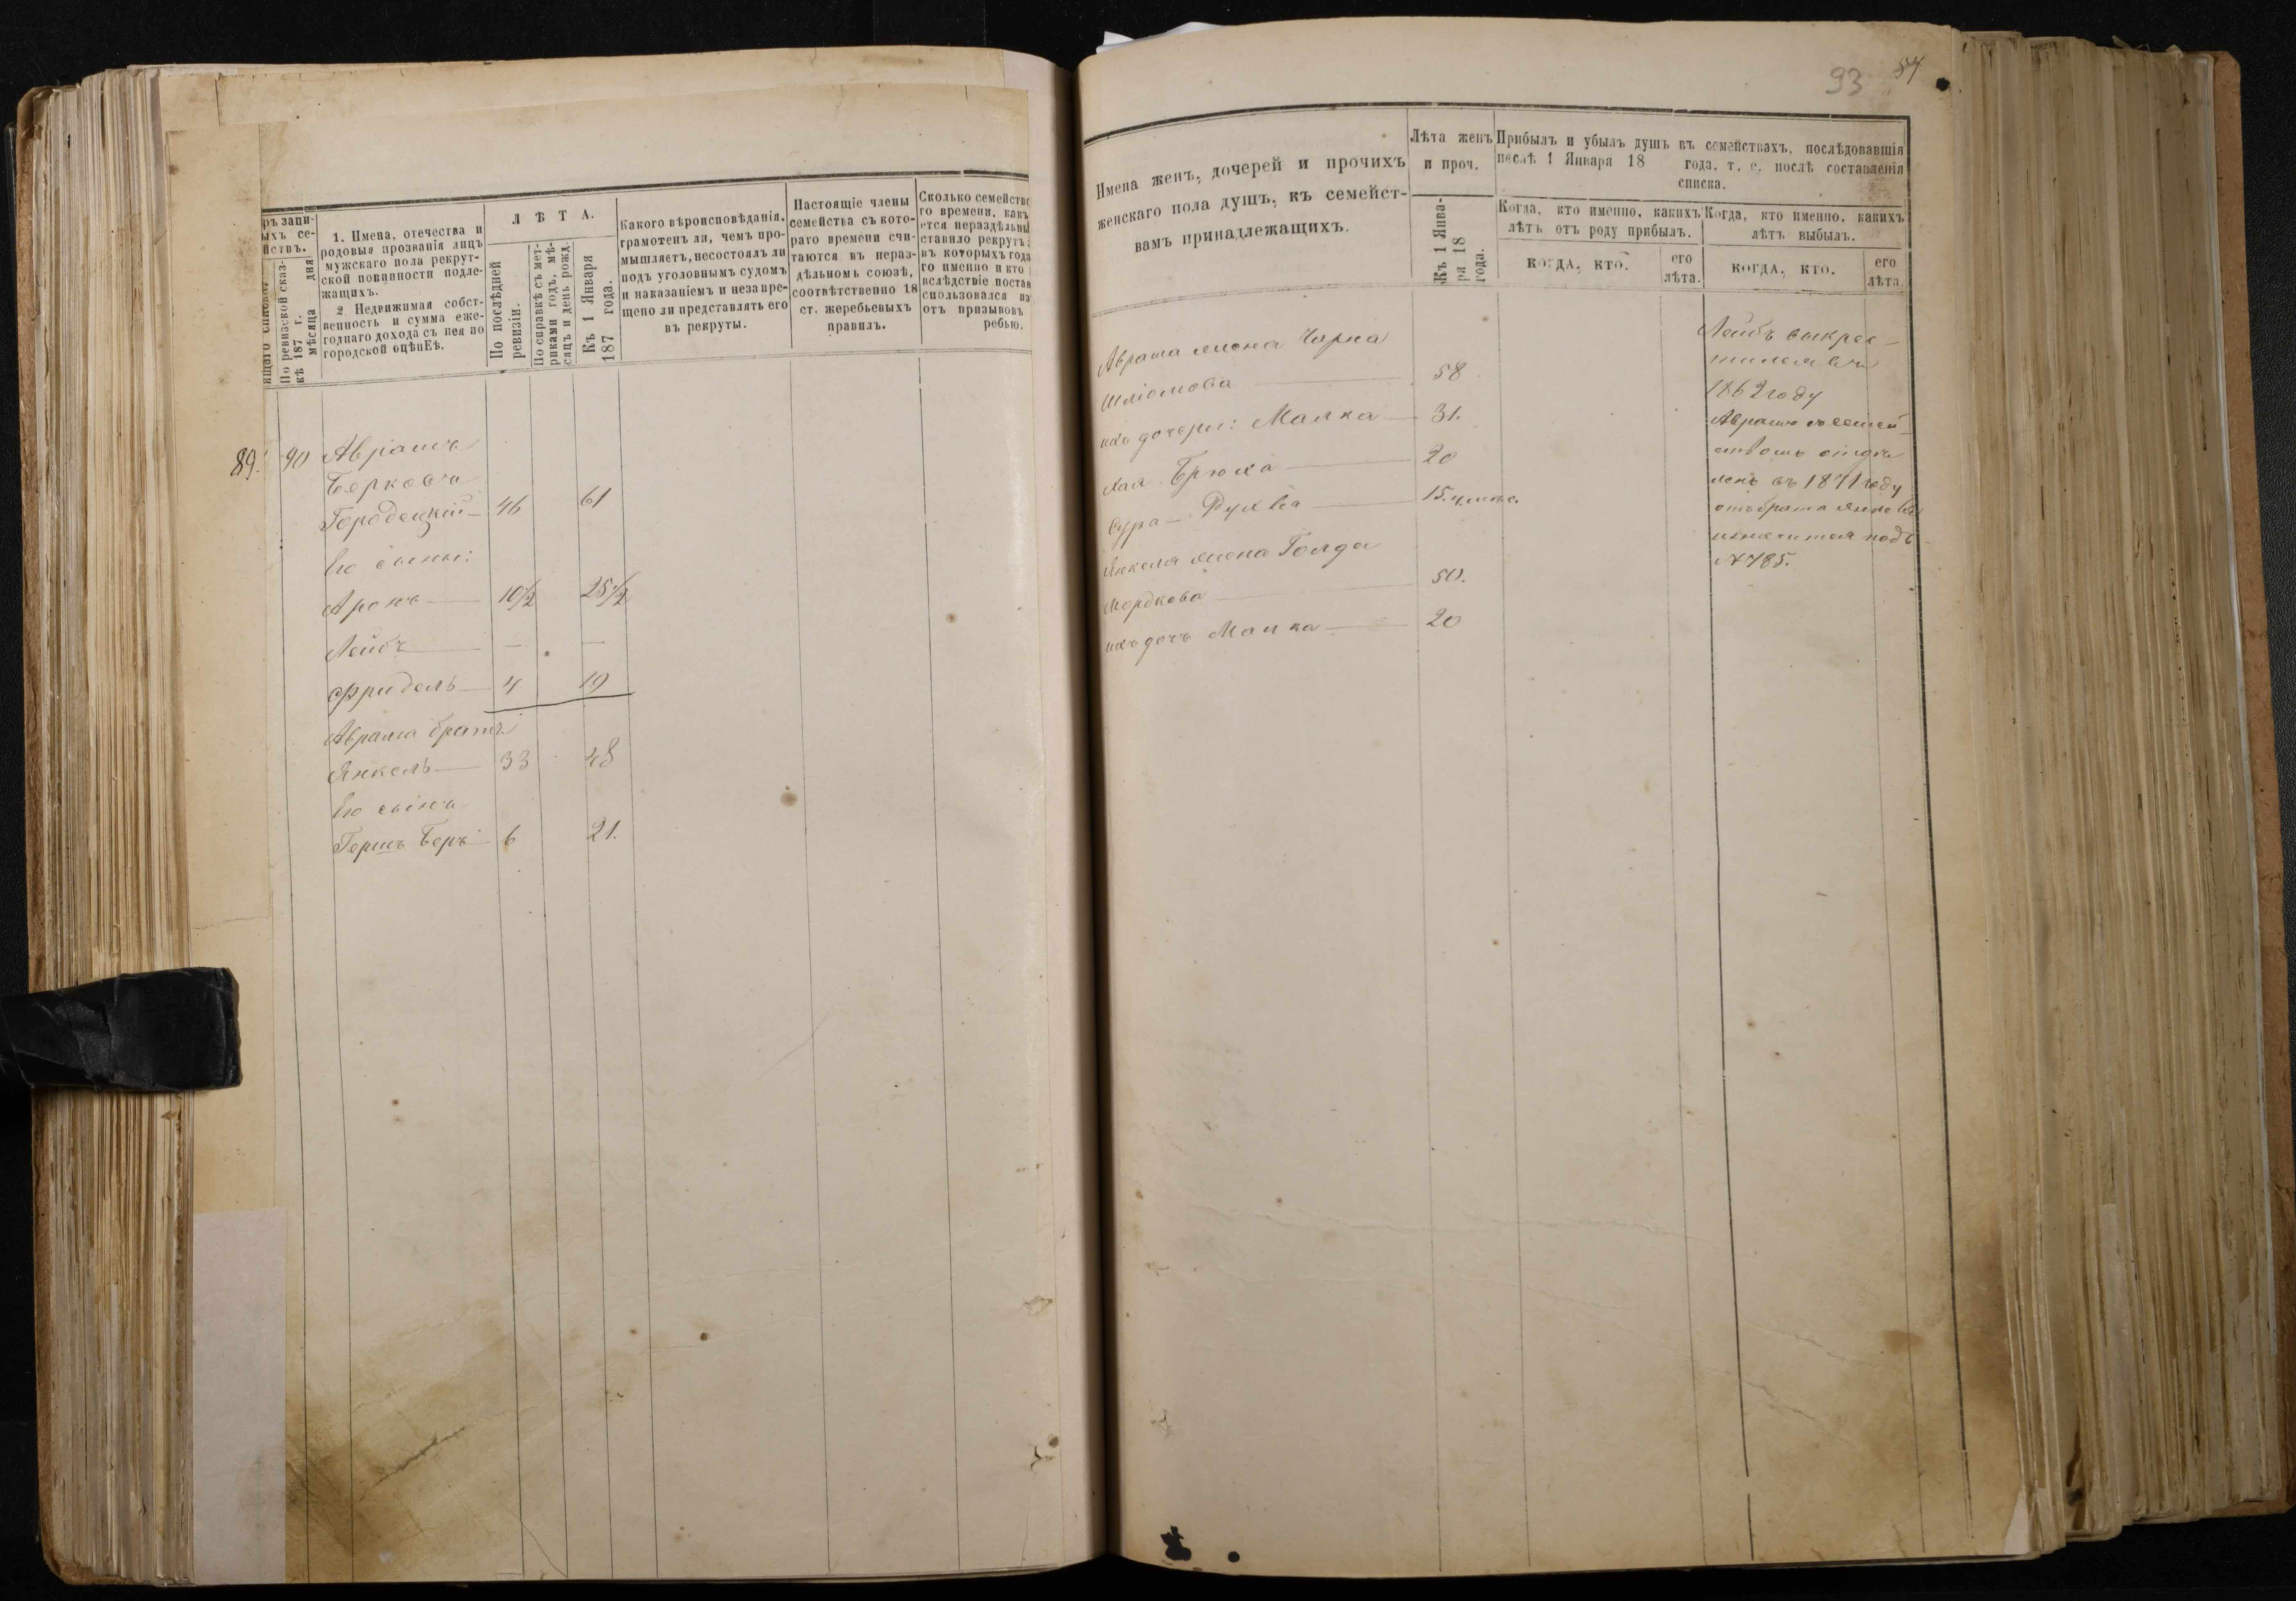 ръ запи-
ыхъ се-
йствъ.
По ревизской сказ-
кѣ 187 г. мѣсяца дня
1. Имена, отечества и
родовыя прозванія лицъ
мужскаго пола рекрут-
ской повинности подле-
жащихъ.
2 Недвижимая собст-
венность и сумма еже-
годнаго дохода съ нея по
городской оцѣнкѣ.
ЛѢТА.
По послѣдней
ревизіи.
По справкѣ съ мет-
риками годъ, мѣ-
сяцъ и день рожд.
Къ 1 Января
187 года.
Какого вѣроисповѣданія,
грамотенъ ли, чемъ про-
мышляетъ, несостоялъ ли
подъ уголовнымъ судомъ
и наказаніемъ и незапре-
щено ли представлять его
въ рекруты.
Настоящіе члены
семейства съ кото-
раго времени счи-
таются въ нераз-
дѣльномъ союзѣ,
соотвѣтственно 18
ст. жеребьевыхъ
правилъ.
Сколько семейство
го времени, какъ
ется нераздѣльны
ставило рекрутъ:
въ которыхъ года
го именно и кто
вслѣдствіе постав
спользовался из
отъ призывовъ
ребью.
89. 90 Абрамъ
Берковъ
Городецкій 46 61
Его сыны:
Аронъ 10½ 25½
Лейбъ — —
Фридель 4 19
Абрама братъ
Янкель 33 48
Его сынъ
Гершъ Беръ 6 21.
93 87
Имена женъ, дочерей и прочихъ
женскаго пола душъ, къ семейст-
вамъ принадлежащихъ.
Лѣта женъ
и проч.
Къ 1 Янва-
ря 18
года.
Прибылъ и убылъ душъ въ семействахъ, послѣдовавшія
послѣ 1 Января 18 года, т. е. послѣ составленія
списка.
Когда, кто именно, какихъ
лѣтъ отъ роду прибылъ.
когда, кто.
его
лѣта.
Когда, кто именно, какихъ
лѣтъ выбылъ.
когда, кто.
его
лѣта.
Абрама жена Чарна
Шліомова 58
ихъ дочери: Малка 31.
Хая Брюха 20
Сура Рухва
Янкеля жена Голда
Мордкова 50.
ихъ дочь Малка 20
Лейбъ выкрес-
тился въ
1862 году
Абрамъ съ семей-
ствомъ отдѣ
ленъ въ 1871 году
отъ брата Янкеля
и значится подъ
№ 785.